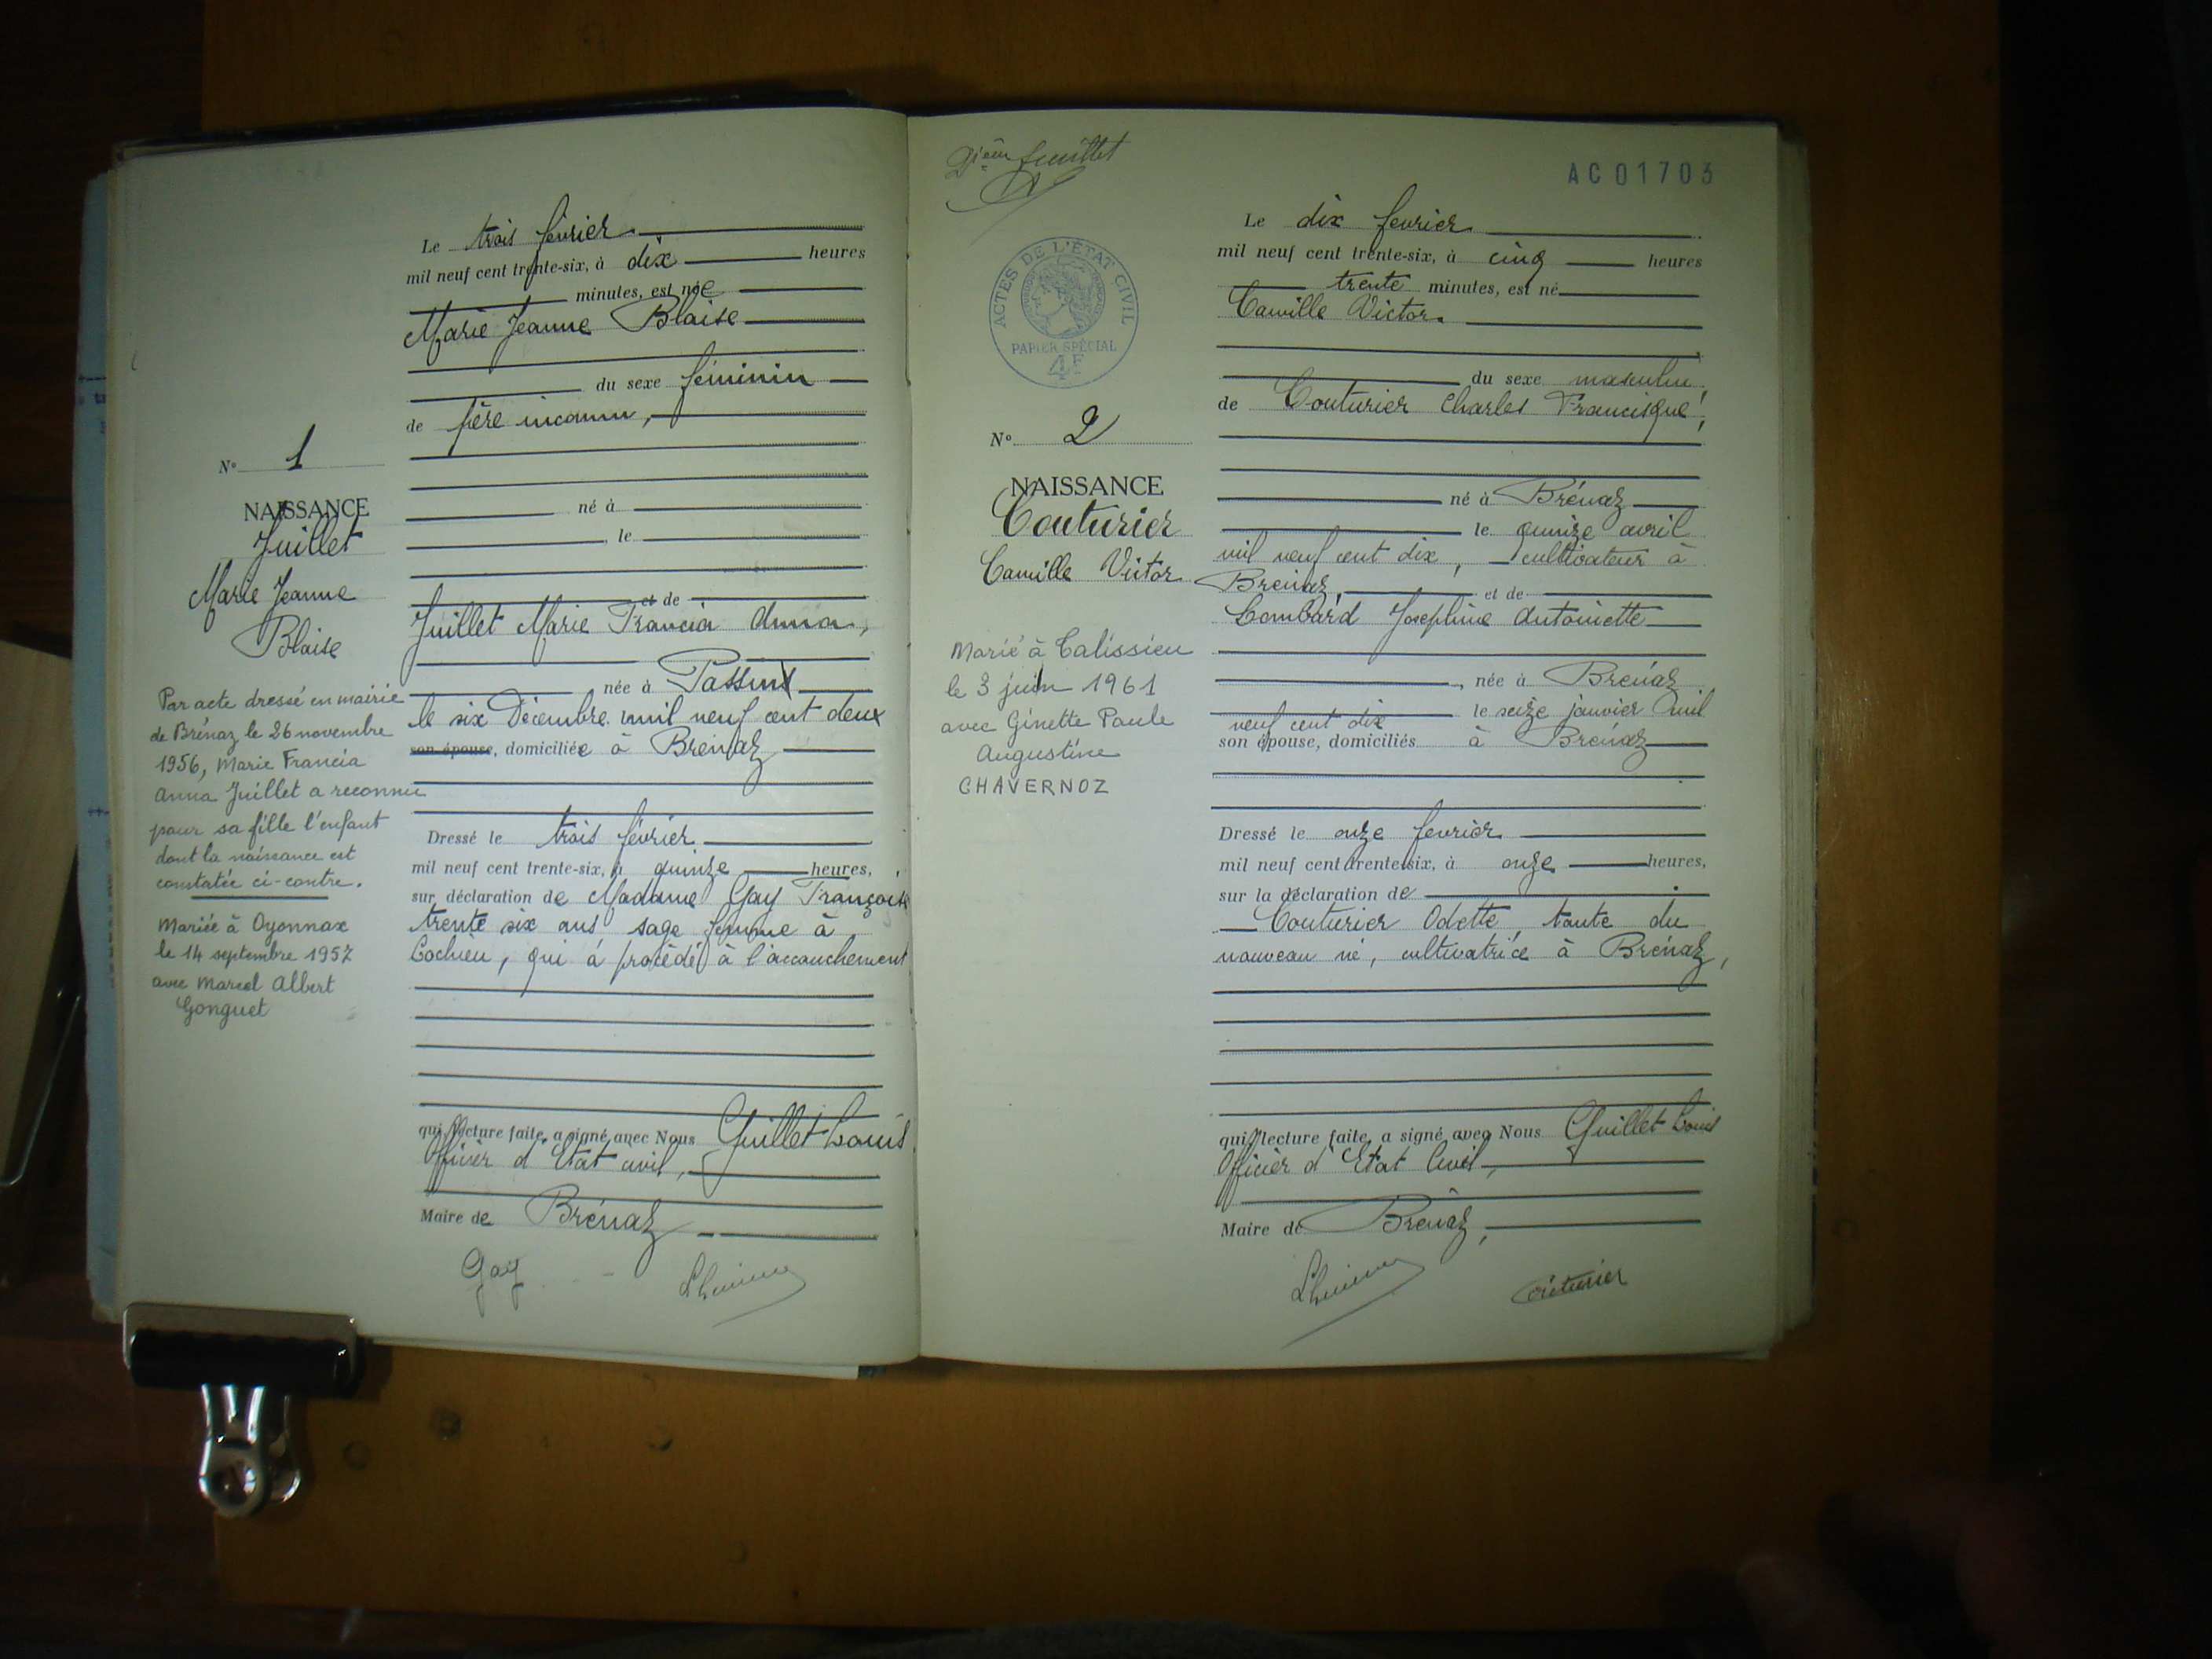 Le trois février
mil neuf cent trente-six, à dix heures
minutes, est née
Marie Jeanne Blaise
du sexe féminin
de père inconnu,
né à
, le
et de
Juillet Marie Francia Anna,
née à Passin
le six Décembre mil neuf cent deux
son épouse, domiciliée à Brénaz
Dressé le trois février
mil neuf cent trente-six, à quinze heures,
sur déclaration de Madame Gay Françoise
trente six ans sage femme à
qui a procédé à l'accouchement
qui, lecture faite, a signé avec Nous Guillet Louis
Officier d'Etat civil,
Maire de Brénaz
Gay
N° 1
NAISSANCE
Juillet
Marie Jeanne
Blaise
Par acte dressé en mairie
de Brénaz le 26 novembre
1956, Marie Francia
Anna Juillet a reconnu
pour sa fille l'enfant
dont la naissance est
constatée ci-contre.
Mariée à Oyonnax
le 14 septembre 1957
avec Marcel Albert
Gonguet
feuillet
AC 01703
ACTES DE L'ÉTAT CIVIL
PAPIER SPÉCIAL
4F
N° 2
NAISSANCE
Couturier
Camille Victor
Marié à Talissieu
le 3 juin 1961
avec Ginette Paule
Augustine
CHAVERNOZ
Le dix fevrier
mil neuf cent trente-six, à cinq heures
trente minutes, est né
Camille Victor
du sexe masculin,
de Couturier Charles Francisque,
né à Brénaz
le quinze avril
mil neuf cent dix, cultivateur à
Brénaz, et de
Combard Josephine Antoinette
, née à Brénaz
le seize janvier mil
neuf cent dix
son épouse, domiciliés à Brénaz
Dressé le onze fevrier
mil neuf cent trente-six, à onze heures,
sur la déclaration de
Couturier Odette, tante du
nouveau né, cultivatrice à Brénaz,
qui, lecture faite, a signé avec Nous Guillet Louis
Officier d'Etat Civil,
Maire de Brénaz,
Couturier